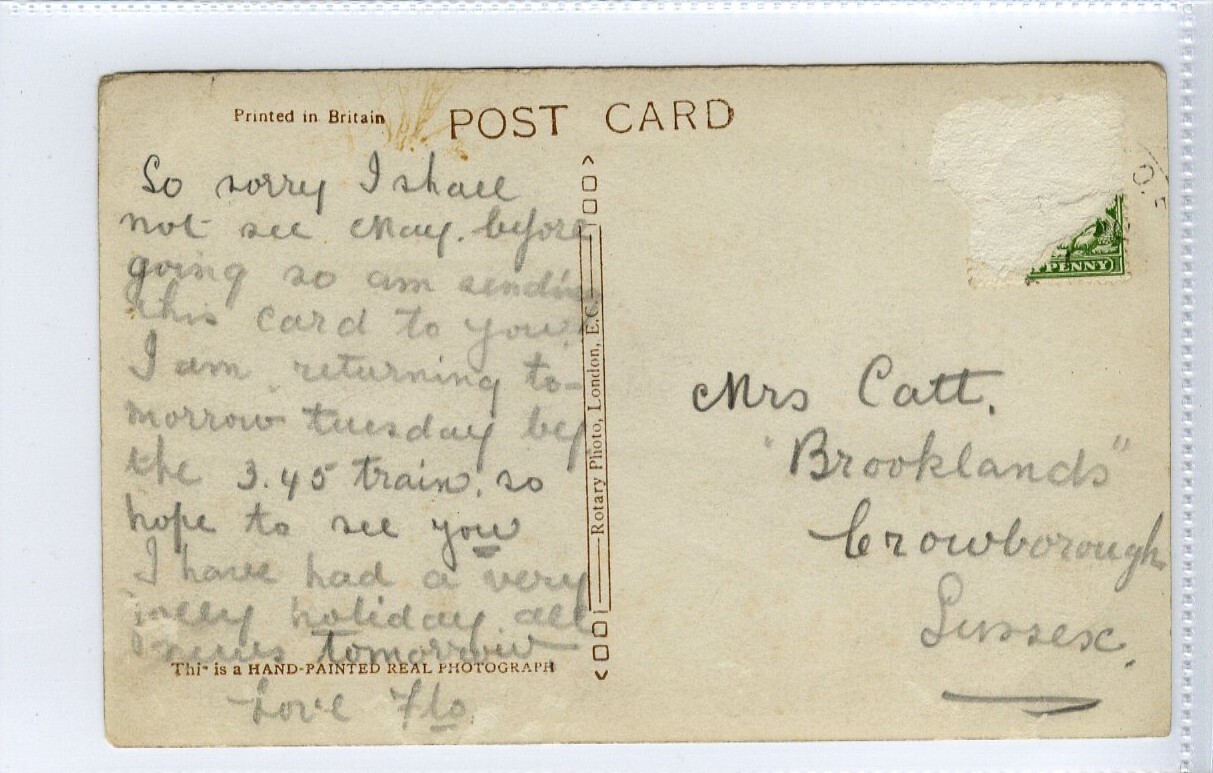 Printed in Britain
POST CARD
So sorry I shall
not see May. before
going so am sending
this card to you.
I am returning to-
morrow tuesday by
the 3.45 train. so
hope to see you
I have had a very
jolly holiday all
news tomorrow
This is a HAND-PAINTED REAL PHOTOGRAPH
Love Flo
Rotary Photo, London, E.C.
PENNY
Mrs Catt.
"Brooklands"
Crowborough.
Sussex.